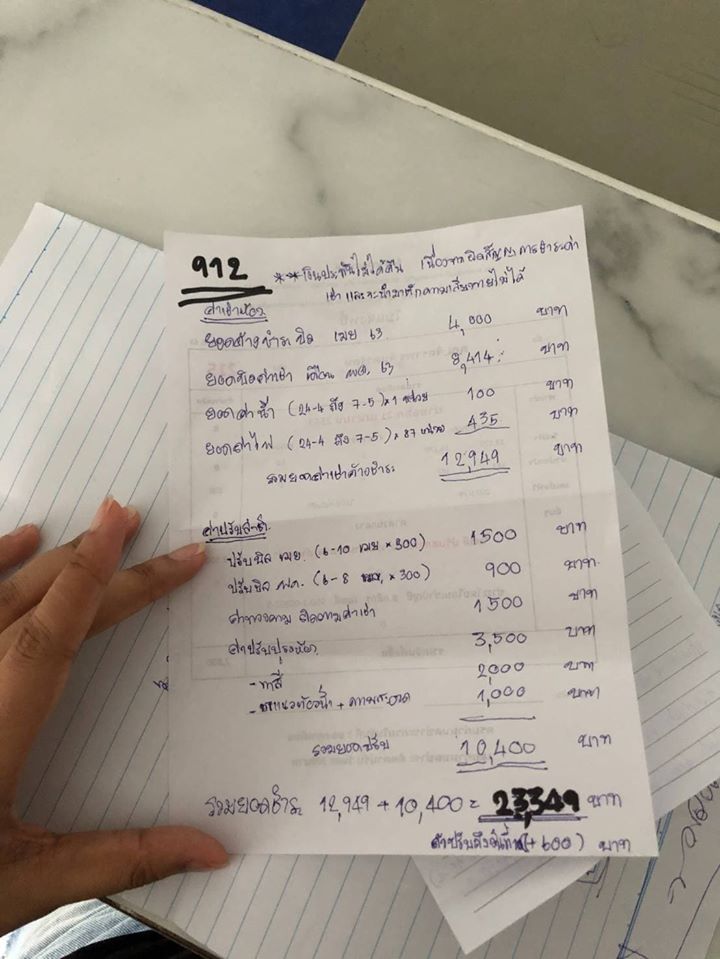 912
** เงินประกันไม่ได้คืน เนื่องจากผิดสัญญาการชำระค่า
เช่า และจะนำมาหักความเสียหายไม่ได้
ค่าเช่าห้อง
ยอดค้างชำระบิล เมย 63 4,000 บาท
ยอดบิลค่าเช่า เดือน พค. 63 8,414.- บาท
ยอดค่าน้ำ (24-4 ถึง 7-5) × 1 หน่วย 100 บาท
ยอดค่าไฟ (24-4 ถึง 7-5) × 87 หน่วย 435 บาท
รวมยอดค่าเช่าค้างชำระ 12,949 บาท
ค่าปรับล่าช้า
ปรับบิล เมย. (6-10 เมย × 300) 1500 บาท
ปรับบิล พค. (6-8 × 300) 900 บาท
ค่าทวงถาม ติดตามค่าเช่า 1500 บาท
ค่าปรับปรุงห้อง 3,500 บาท
- ทาสี 2,000 บาท
- ห้องน้ำ + ความสะอาด 1,000 บาท
รวมยอดปรับ 10,400 บาท
รวมยอดชำระ 12,949 + 10,400 = 23,349 บาท
ค่าปรับถึงวันที่ (+ 600) บาท